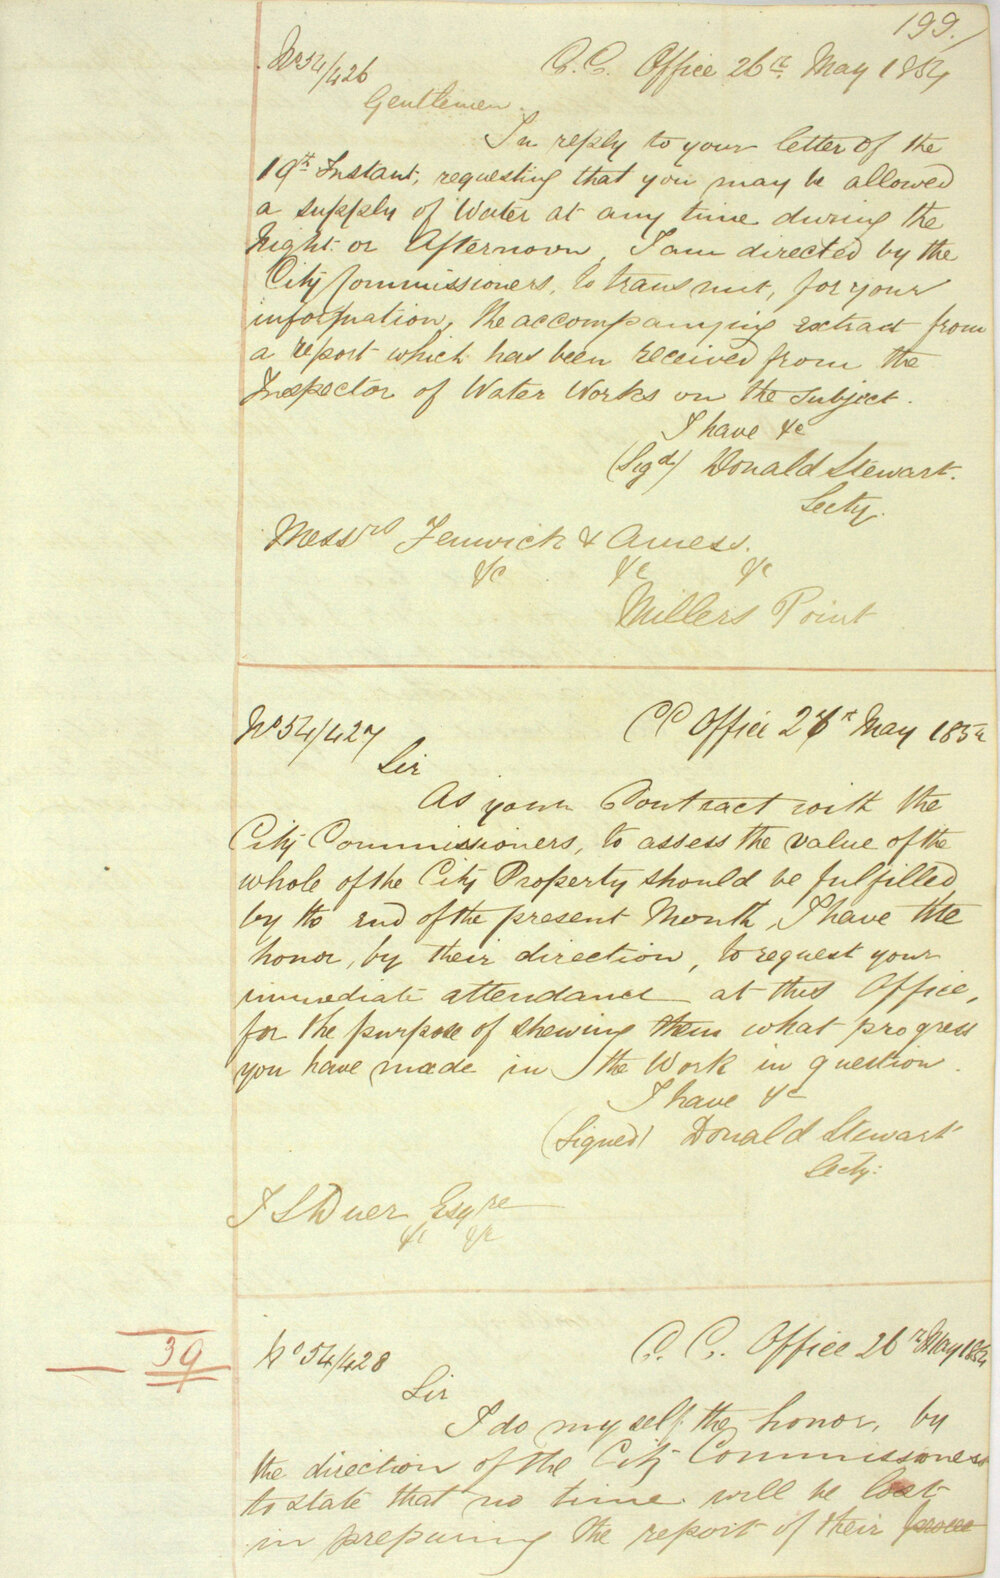 199.
No 54/426
C. C. Office 26th May 1854
Gentlemen.
In reply to your letter of the
19th Instant, requesting that you may be allowed
a supply of Water at any time during the
Night or Afternoon, I am directed by the
City Commissioners, to transmit, for your
information, the accompanying extract from
a report which has been received from the
Inspector of Water Works on the subject.
I have &c
(Sigd) Donald Stewart.
Secty.
Messrs Fenwick & Amess.
&c &c &c
Millers Point
No 54/427
CC Office 26th May 1854
Sir
As your Contract with the
City Commissioners, to assess the value of the
whole of the City Property should be fulfilled
by the end of the present Month, I have the
honor, by their direction, to request your
immediate attendance at this Office,
for the purpose of shewing them what progress
you have made in the Work in question.
I have &c
(Signed) Donald Stewart
Secty:
Duer Esqre
&c &c
39
No 54/428
C. C. Office 26th May 1854
Sir
I do myself the honor, by
the direction of the City Commissioners
to state that no time will be lost
in preparing the report of their proce